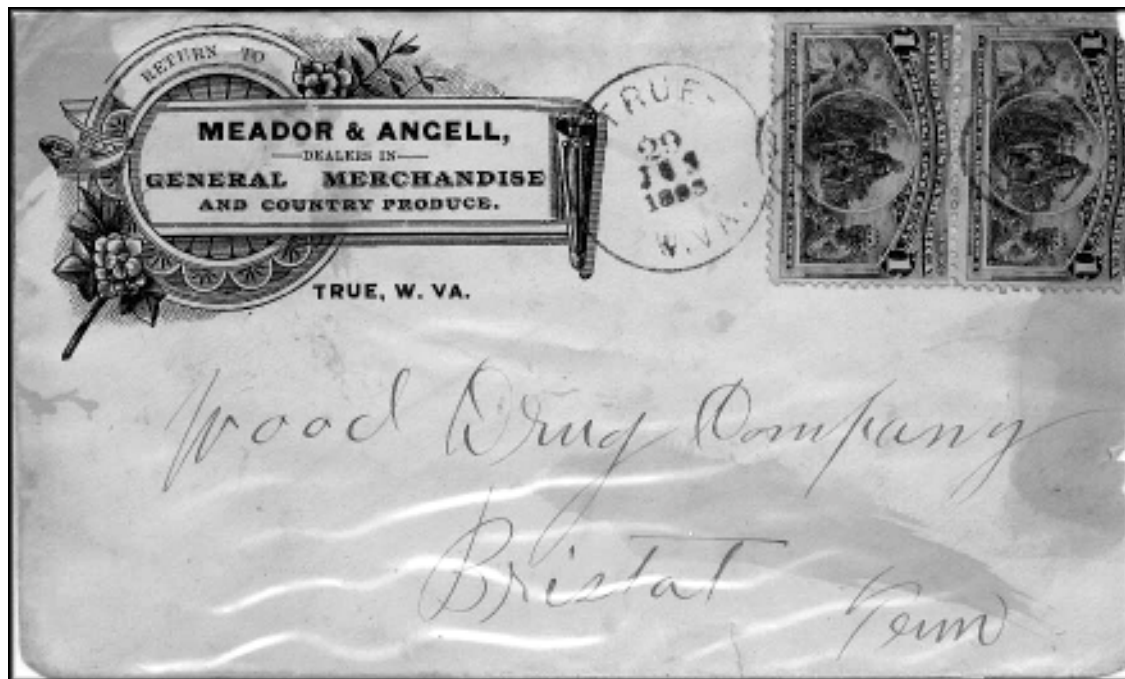 RETURN TO
MEADOR & ANGELL,
DEALERS IN
GENERAL MERCHANDISE
AND COUNTRY PRODUCE.
TRUE, W. VA.
TRUE.
29
W. VA.
1
1
1
1
Wood Drug Company
Bristol
Tenn